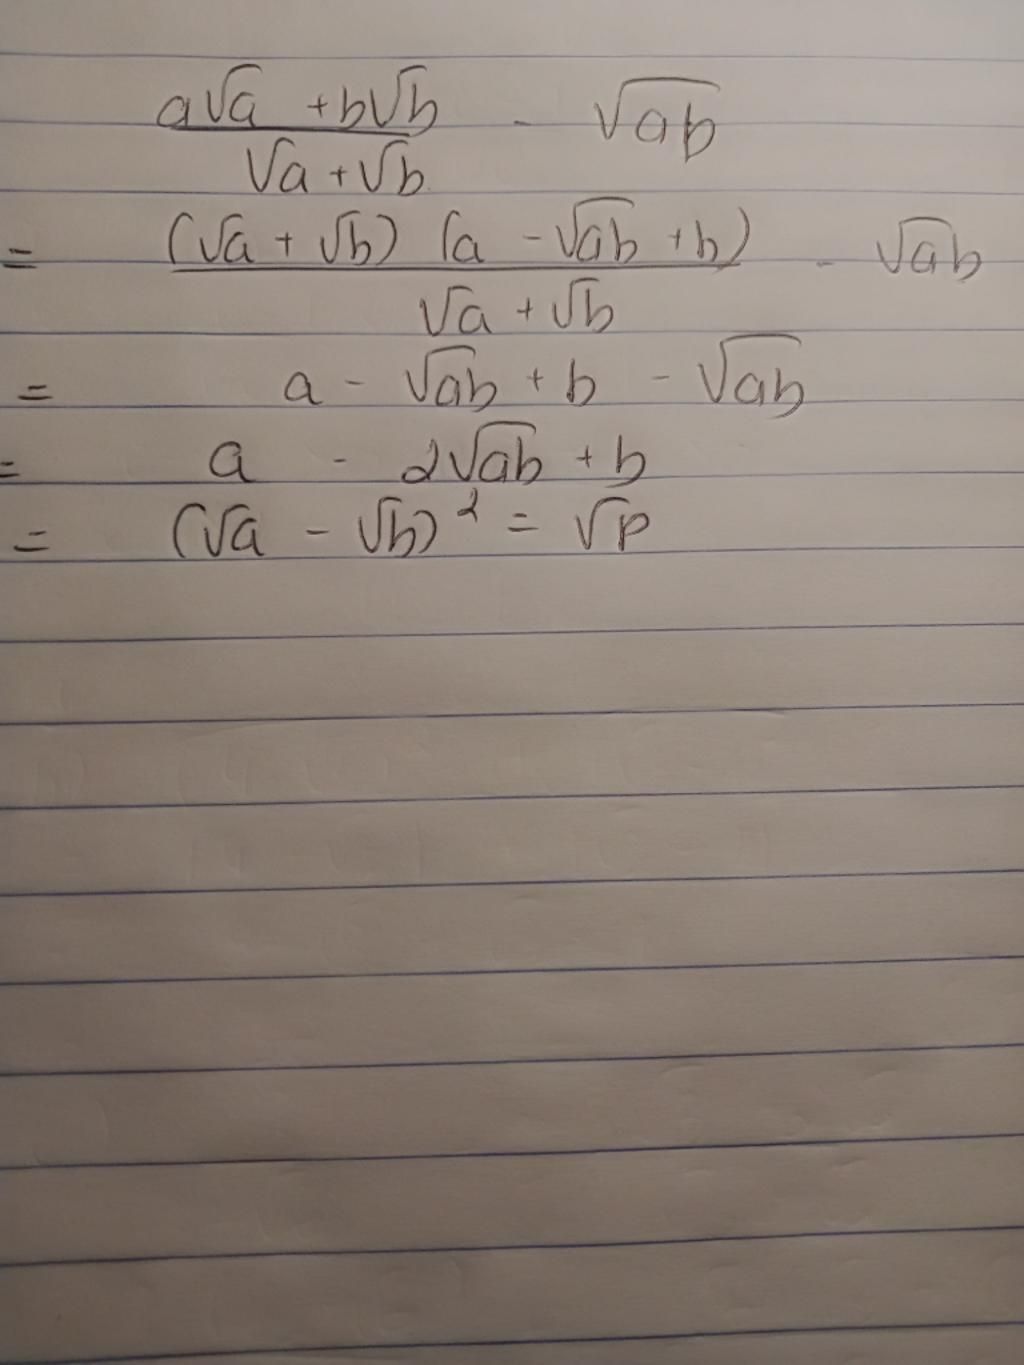 a√a + b√b / √a + √b - √ab
= (√a + √b) (a - √ab + b) / √a + √b - √ab
= a - √ab + b - √ab
= a - 2√ab + b
= (√a - √b)² = √P